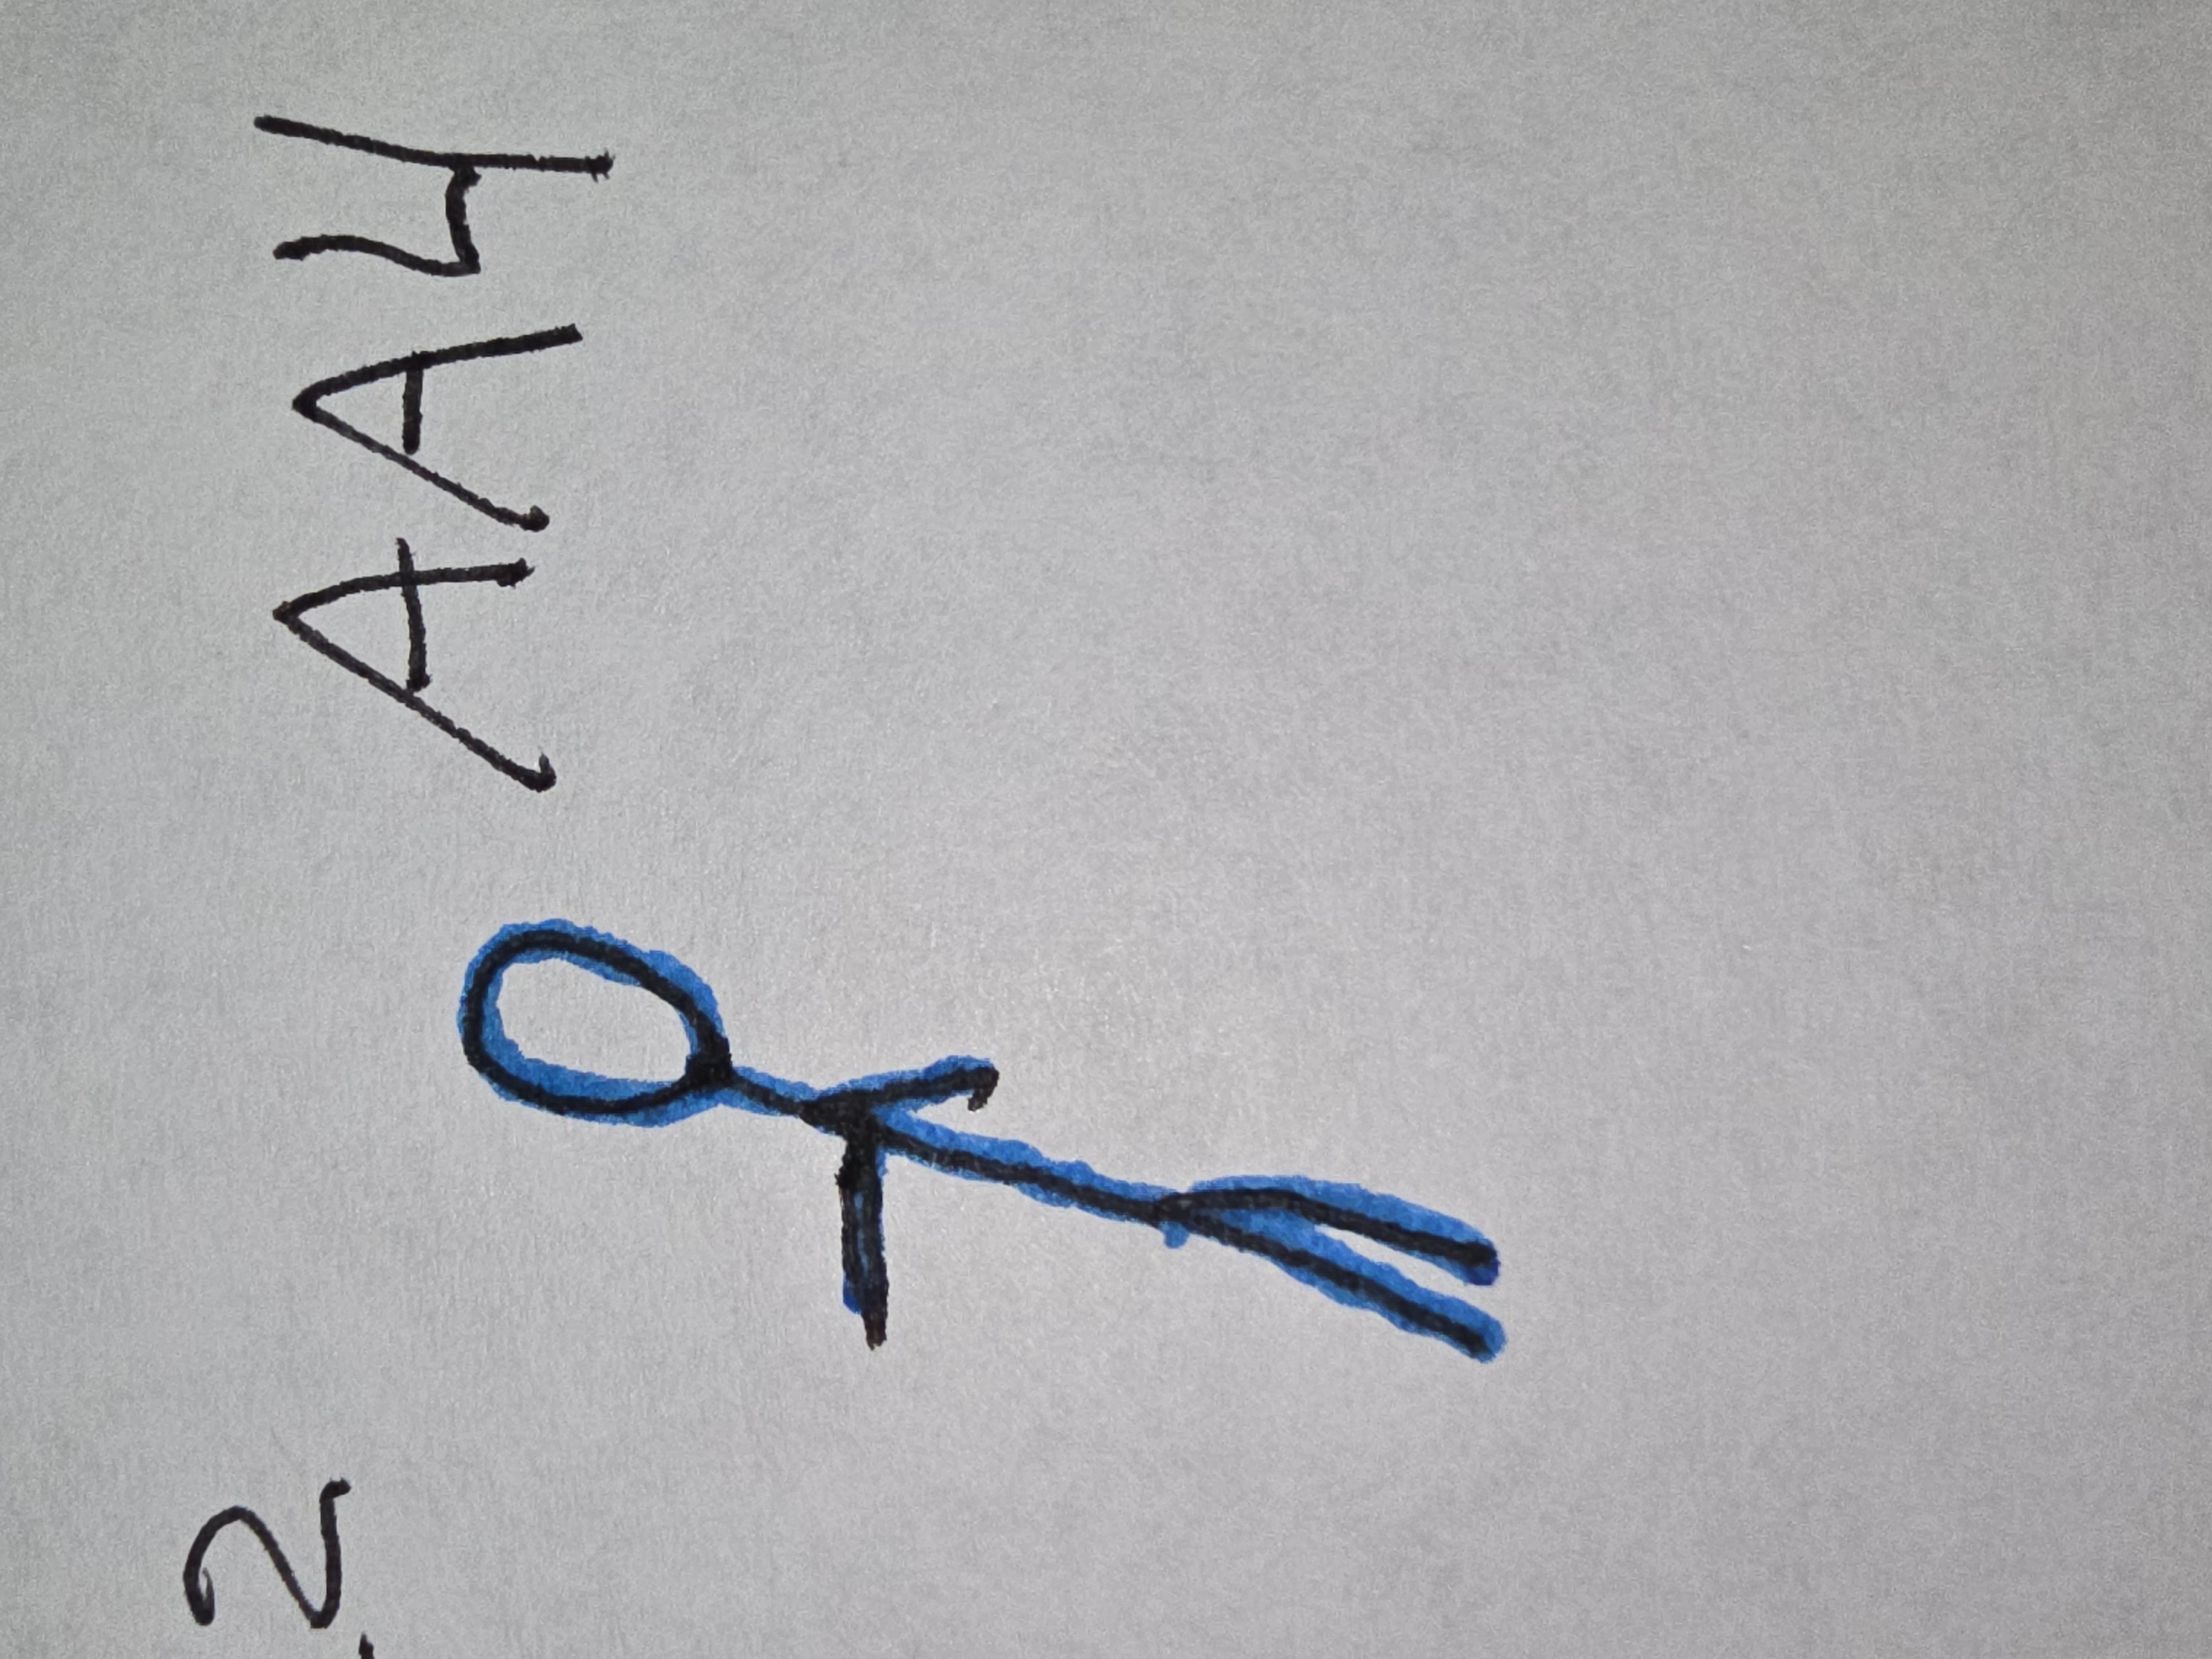 2
AA4